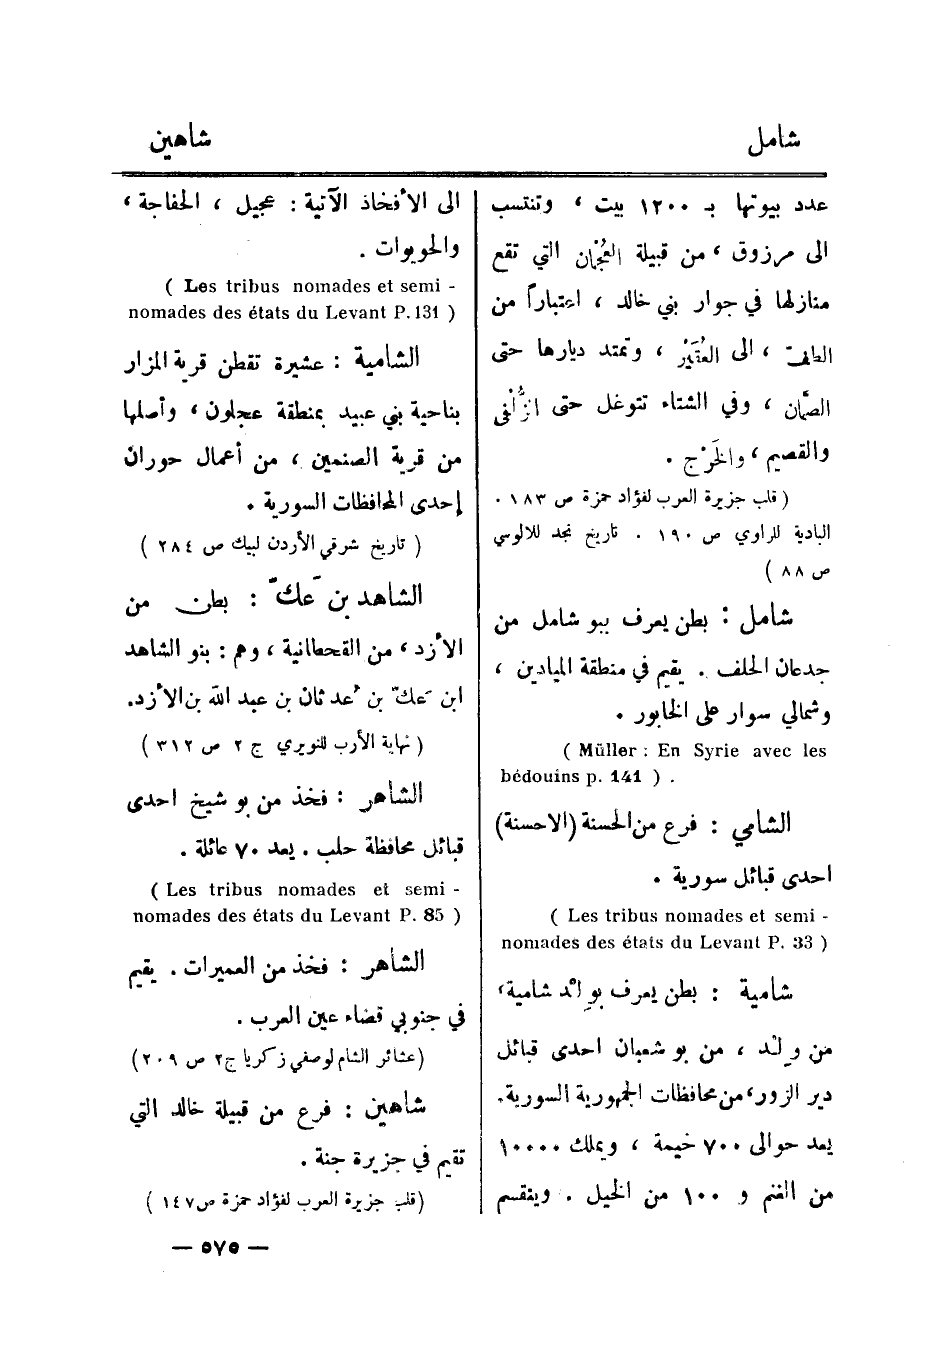 شامل
شاهين
عدد بيوتها بـ ١٢٠٠ بيت ، وتنتسب
الى مرزوق ، من قبيلة العُجْمان التي تقع
منازلها في جوار بني خالد ، اعتباراً من
الطف ، الى العُقَيْر ، وتمتد ديارها حتى
الصُّمان ، وفي الشتاء تتوغل حتى الزُّلْفى
والقصيم ، والخَرْج .
( قلب جزيرة العرب لفؤاد حمزة ص ١٨٣ .
البادية للراوي ص ١٩٠ . تاريخ نجد للالوسي
ص ٨٨ )
شامل : بطن يعرف ببو شامل من
جدعان الخلف . يقيم في منطقة الميادين ،
وشمالي سوار على الخابور .
( Müller : En Syrie avec les
bédouins p. 141 ) .
الشامي : فرع من الحسنة (الاحسنة)
احدى قبائل سورية .
( Les tribus nomades et semi -
nomades des états du Levant P. 33 )
شامية : بطن يعرف بو الد شامية ،
من ولد ، من بو شعبان احدى قبائل
دير الزور ، من محافظات الجمهورية السورية .
يعد حوالى ٧٠٠ خيمة ، ويملك ١٠٠٠٠
من الغنم و ١٠٠ من الخيل . وينقسم
الى الأفخاذ الآتية : عجيل ، الخفاجة ،
والحويوات .
( Les tribus nomades et semi -
nomades des états du Levant P. 131 )
الشامية : عشيرة تقطن قرية المزار
بناحية بني عبيد بمنطقة عجلون ، وأصلها
من قرية الصنمين ، من أعمال حوران
إحدى المحافظات السورية .
( تاريخ شرقي الأردن لبيك ص ٢٨٤ )
الشاهد بن عَكّ : بطن من
الأزد ، من القحطانية ، وهم : بنو الشاهد
ابن عَكّ بن عُدثان بن عبد الله بن الأزد.
( نهاية الأرب للنويري ج ٢ ص ٣١٢ )
الشاهر : فخذ من بو شيخ احدى
قبائل محافظة حلب . يعد ٧٠ عائلة .
( Les tribus nomades et semi -
nomades des états du Levant P. 85 )
الشاهر : فخذ من العميرات . يقيم
في جنوبي قضاء عين العرب .
(عشائر الشام لوصفي زكريا ج٢ ص ٢٠٩ )
شاهين : فرع من قبيلة خالد التي
تقيم في جزيرة جنة .
(قلب جزيرة العرب لفؤاد حمزة ص١٤٧ )
— ٥٧٥ —